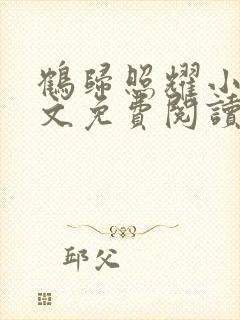 鶴歸照耀小
文免費閱讀
邱父